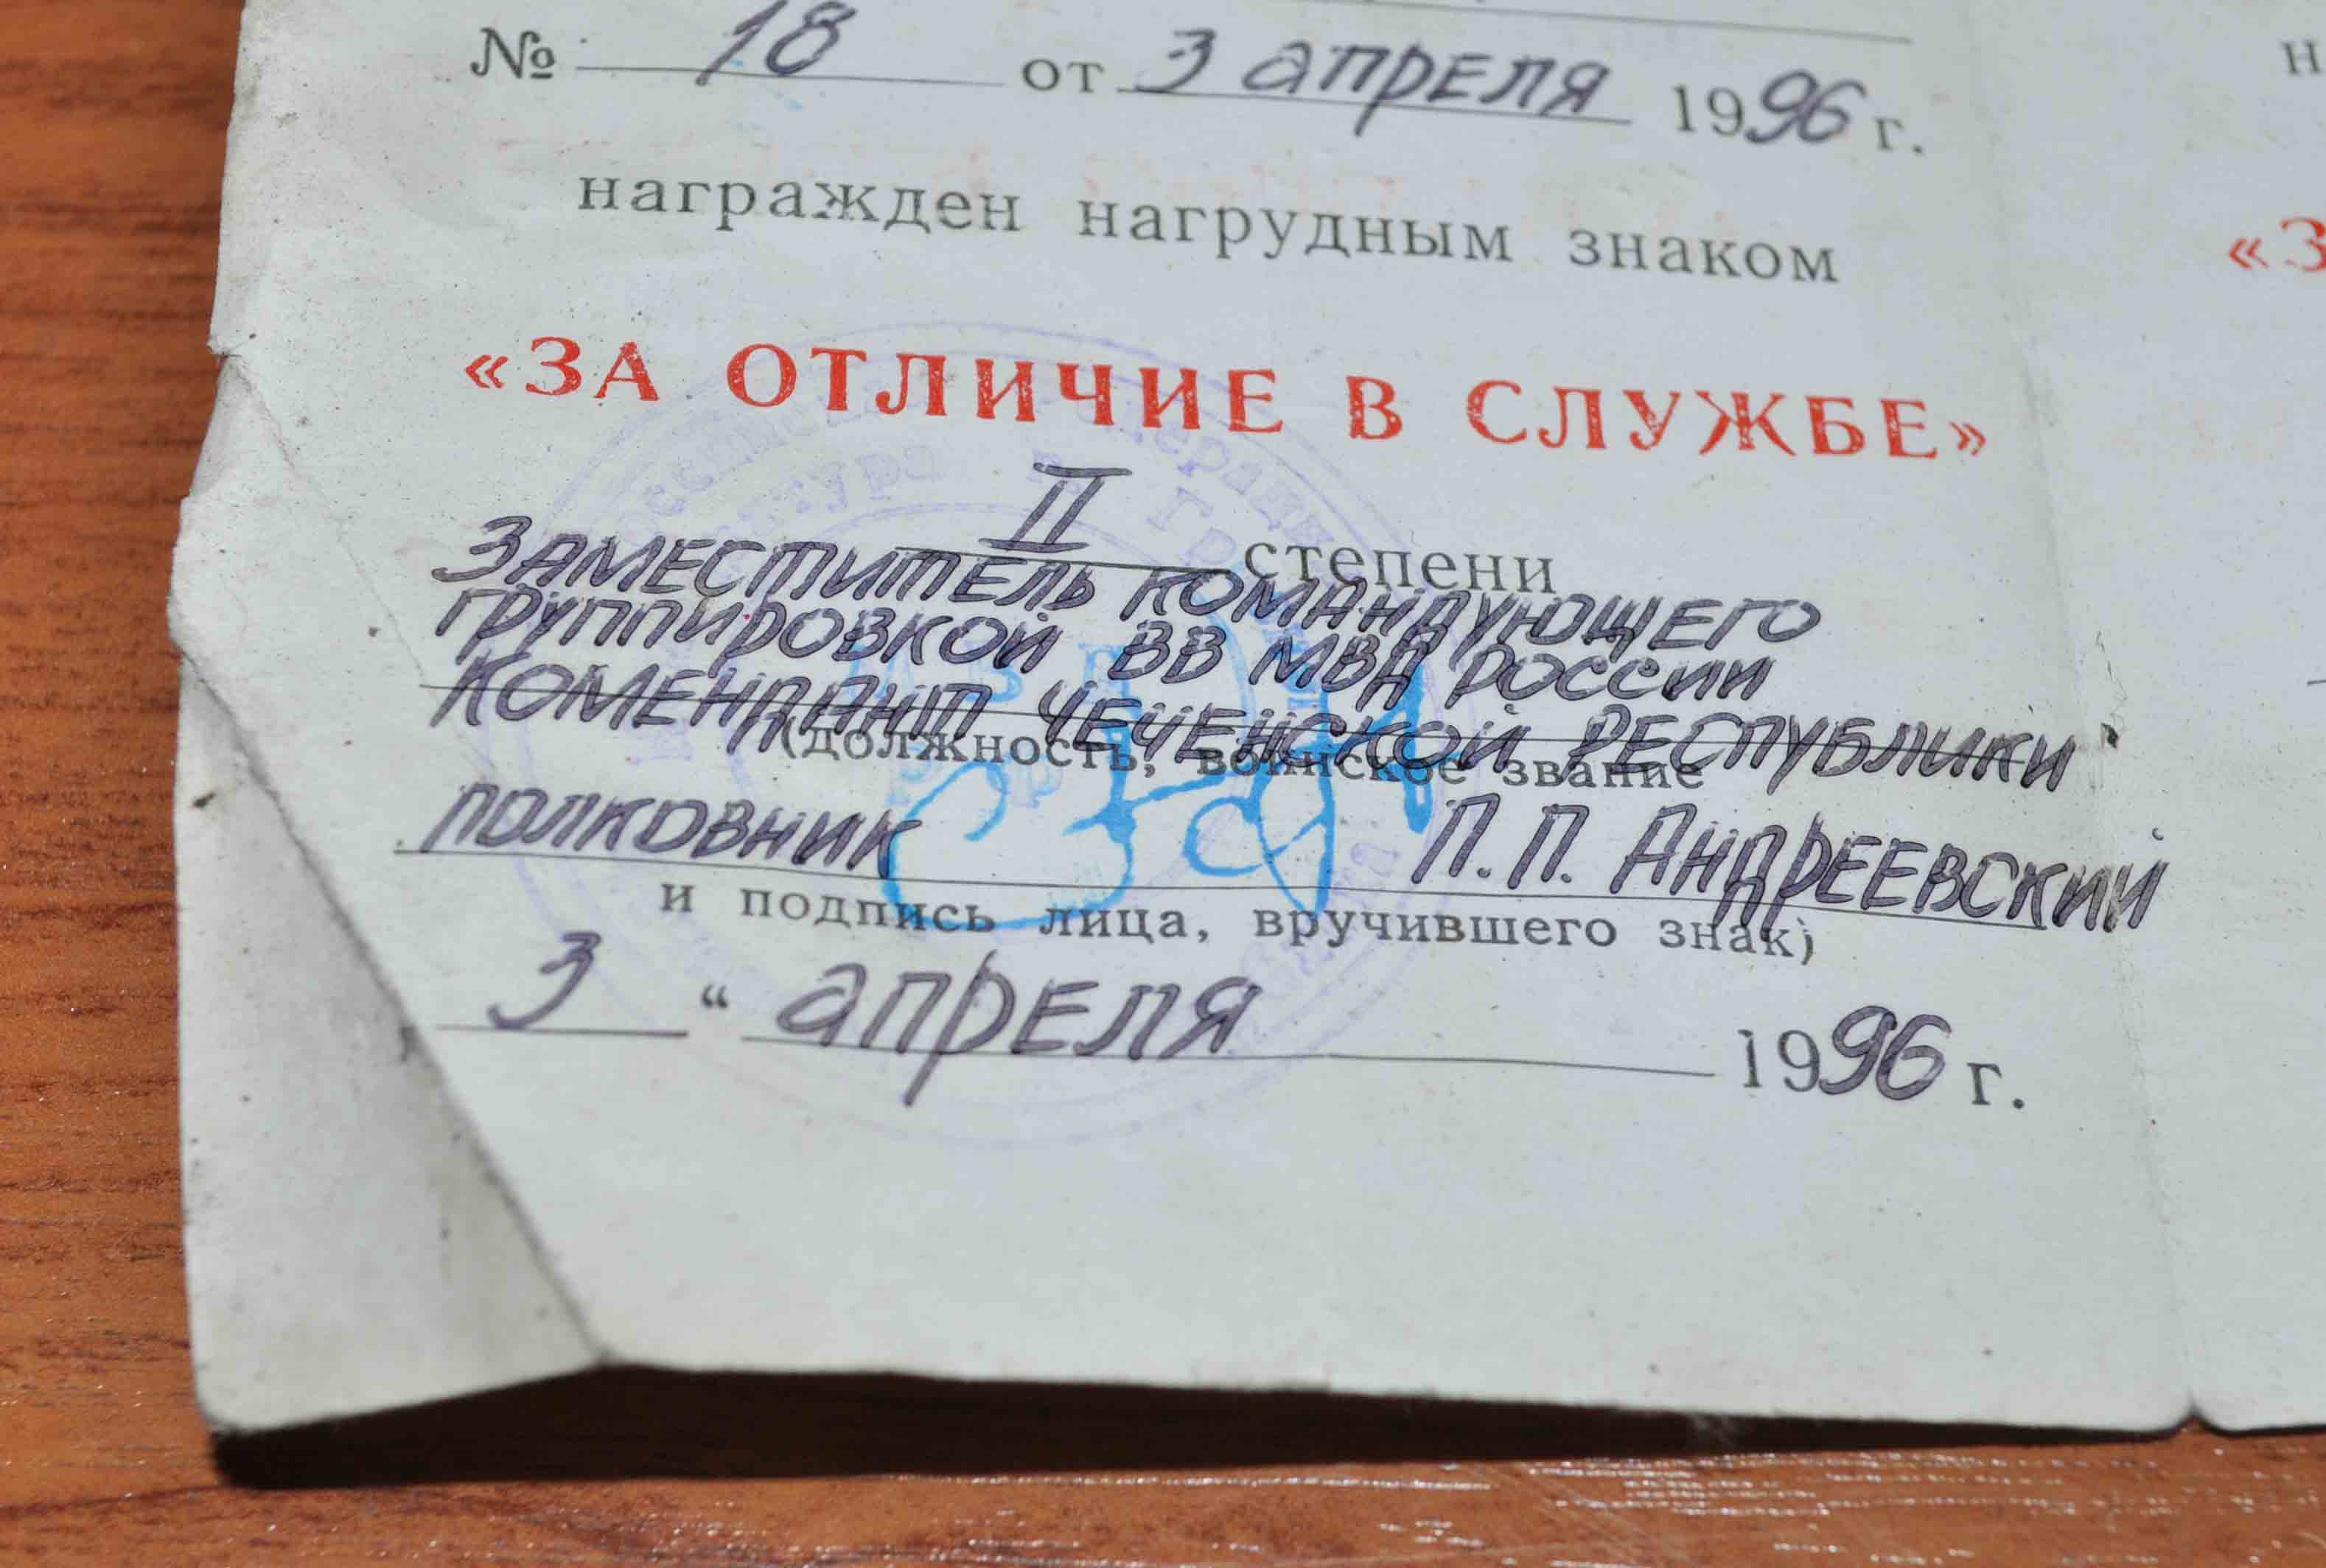 № 18 от 3 апреля 1996 г.
награжден нагрудным знаком
«ЗА ОТЛИЧИЕ В СЛУЖБЕ»
II степени
Заместитель командующего
группировкой ВВ МВД России
Комендант Чеченской Республики
(должность, воинское звание
полковник П.П. Андреевский
и подпись лица, вручившего знак)
3 “ апреля 1996 г.
н
«З